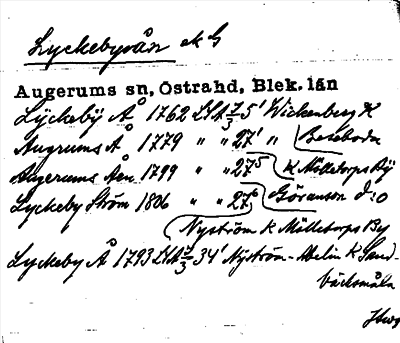 Lyckebyån
Augerums sn, Östrahd, Blek. län
Lyckeby Å 1762 LSA 7/3 5' Wickenberg K
Augrums Å 1779 " " 27' " Beseboda
Augerums Åen 1799 " " 27⁵ K Mölletorps By
Lyckeby Ström 1806 " " 27⁶ Göranson d:o
Nyström K Mölletorps By
Lyckeby Å 1793 LSA 7/3 34' Nyström - Abelin K Sand-
bäcksmåla